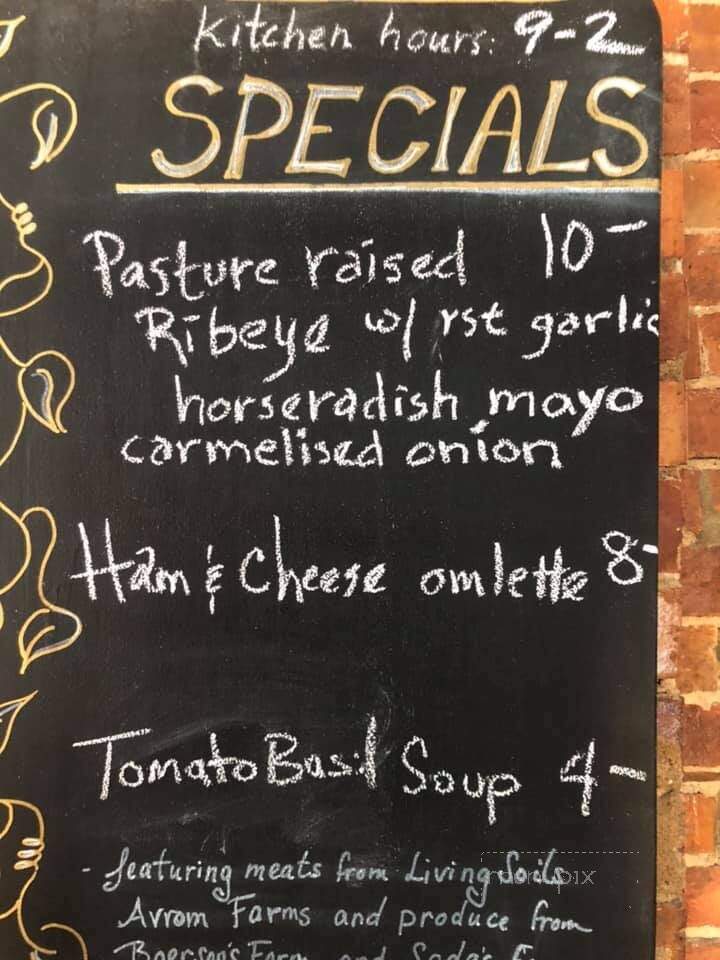 Kitchen hours: 9-2
SPECIALS
Pasture raised 10-
Ribeye w/ rst garlic
horseradish mayo
carmelised onion
Ham & Cheese omlette 8-
Tomato Basil Soup 4-
- featuring meats from Living Soils
Avrom Farms and produce from
Boerson's Farm and